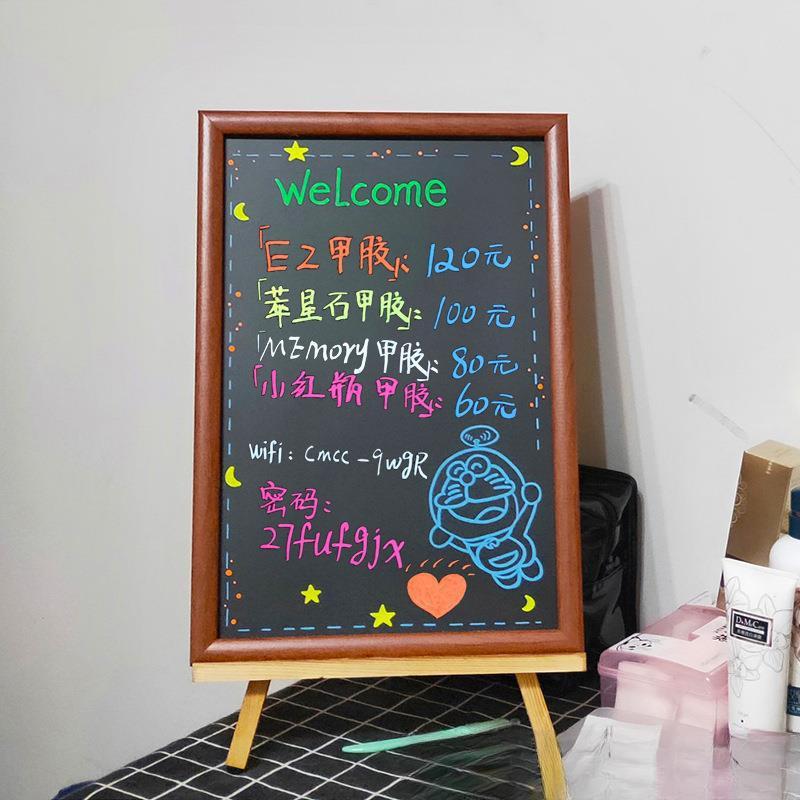 Welcome
「EZ甲胶」: 120元
「苹星石甲胶」: 100元
「MEmory甲胶」: 80元
「小红瓶甲胶」: 60元
wifi: cmcc-9wgR
密码:
27fufgjx
D&M.Care